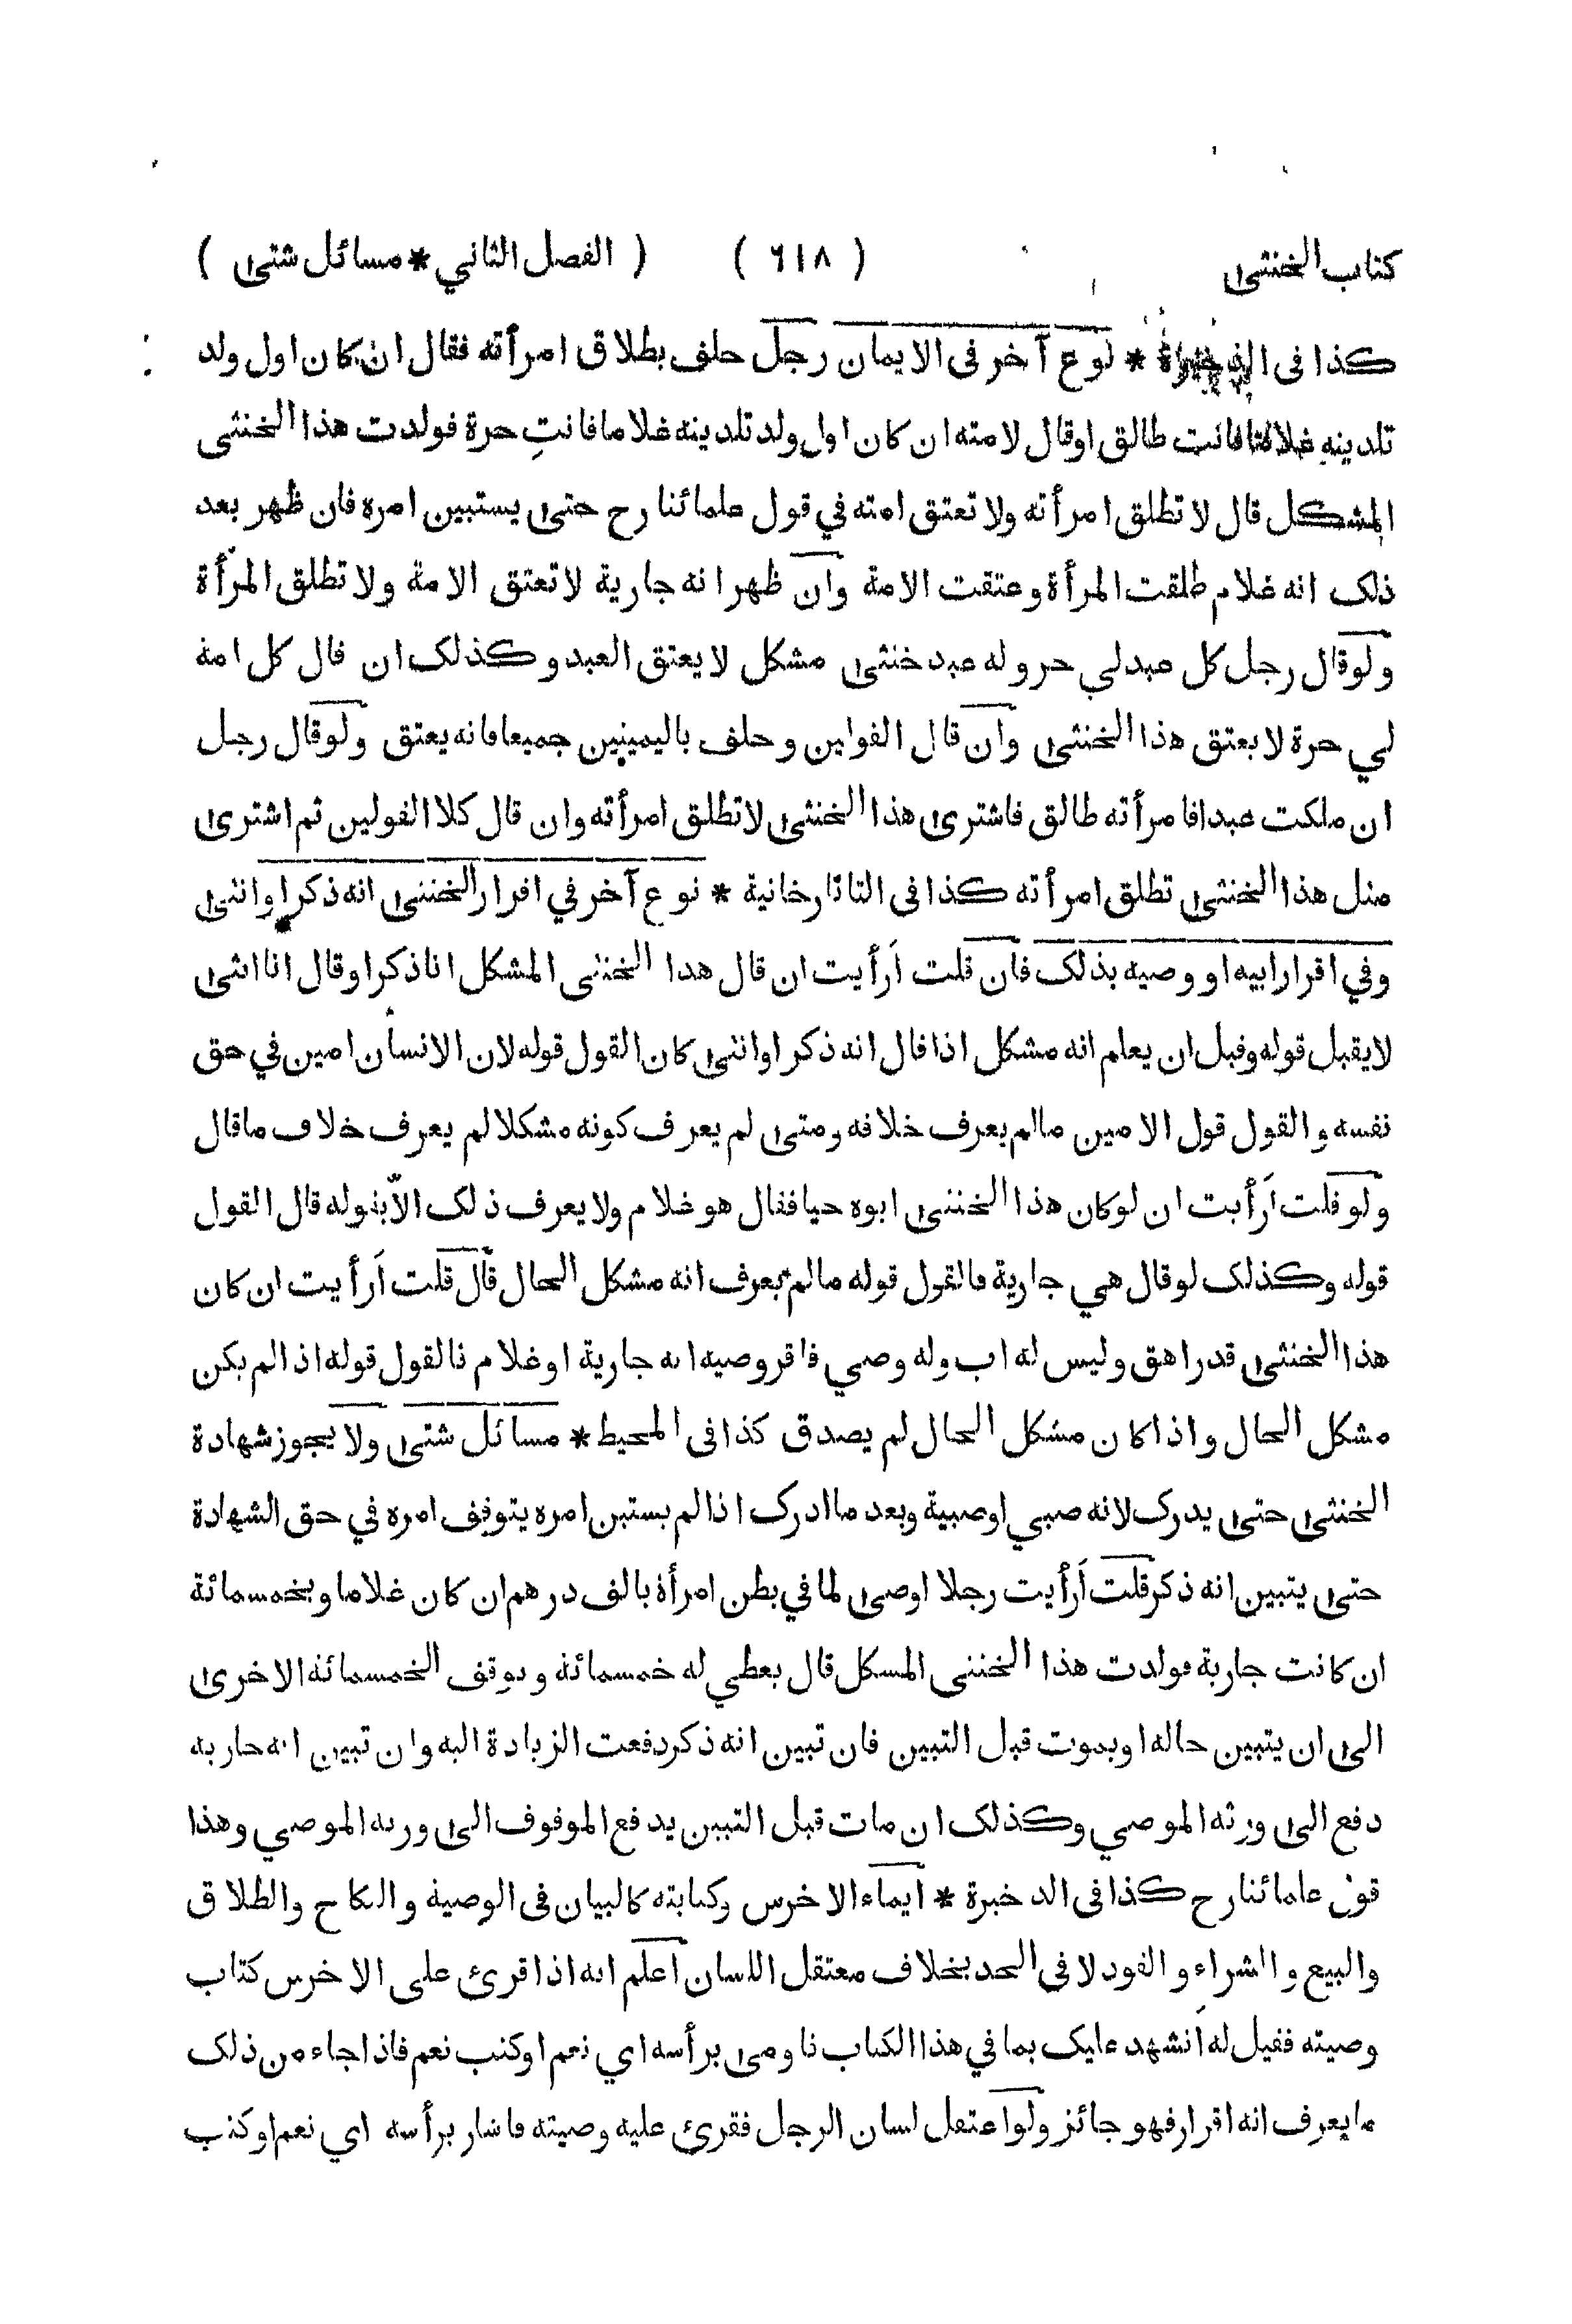 كتاب الخنثى ( ٦١٨ ) ( الفصل الثاني * مسائل شتى )
كذا فى الذخيرة * نوع آخر فى الايمان رجل حلف بطلاق امرأته فقال ان كان اول ولد
تلدينه غلاما فانت طالق اوقال لامته ان كان اول ولد تلدينه غلاما فانتِ حرة فولدت هذا الخنثى
المشكل قال لا تطلق امرأته ولا تعتق امته في قول علمائنا رح حتى يستبين امره فان ظهر بعد
ذلك انه غلام طلقت المرأة وعتقت الامة وان ظهر انه جارية لا تعتق الامة ولا تطلق المرأة
ولوقال رجل كل عبد لي حر وله عبد خنثى مشكل لا يعتق العبد وكذلك ان قال كل امة
لي حرة لا يعتق هذا الخنثى وان قال القولين وحلف باليمينين جميعا فانه يعتق ولوقال رجل
ان ملكت عبدا فامرأته طالق فاشترى هذا الخنثى لا تطلق امرأته وان قال كلا القولين ثم اشترى
مثل هذا الخنثى تطلق امرأته كذا فى التاتارخانية * نوع آخر في اقرار الخنثى انه ذكر اوانثى
وفي اقرار ابيه او وصيه بذلك فان قلت اَرأيت ان قال هذا الخنثى المشكل انا ذكر اوقال انا انثى
لا يقبل قوله وقبل ان يعلم انه مشكل اذا قال انه ذكر اوانثى كان القول قوله لان الانسان امين في حق
نفسه والقول قول الامين مالم يعرف خلافه ومتى لم يعرف كونه مشكلا لم يعرف خلاف ماقال
ولو قلت اَرأيت ان لوكان هذا الخنثى ابوه حيا فقال هو غلام ولا يعرف ذلك الاّ بقوله قال القول
قوله وكذلك لوقال هي جارية فالقول قوله مالم يعرف انه مشكل الحال قال قلت اَرأيت ان كان
هذا الخنثى قد راهق وليس له اب وله وصي فاقر وصيه انه جارية اوغلام فالقول قوله اذا لم يكن
مشكل الحال واذا كان مشكل الحال لم يصدق كذا فى المحيط * مسائل شتى ولا يجوز شهادة
الخنثى حتى يدرك لانه صبي اوصبية وبعد ما ادرك اذا لم يستبن امره يتوقف امره في حق الشهادة
حتى يتبين انه ذكر قلت اَرأيت رجلا اوصى لما في بطن امرأة بالف درهم ان كان غلاما وبخمسمائة
ان كانت جارية فولدت هذا الخنثى المشكل قال يعطي له خمسمائة ويوقف الخمسمائة الاخرى
الى ان يتبين حاله او يموت قبل التبين فان تبين انه ذكر دفعت الزيادة اليه وان تبين انه جارية
دفع الى ورثه الموصي وكذلك ان مات قبل التبين يدفع الموقوف الى ورثه الموصي وهذا
قول علمائنا رح كذا فى الذخيرة * ايماء الاخرس وكتابته كالبيان فى الوصية والنكاح والطلاق
والبيع والشراء والقود لا فى الحد بخلاف معتقل اللسان اعلم انه اذا قرئ على الاخرس كتاب
وصيته فقيل له اَنشهد عليك بما في هذا الكتاب فاومى برأسه اي نعم اوكتب نعم فاذا جاء من ذلك
ما يعرف انه اقرار فهو جائز ولو اعتقل لسان الرجل فقرئ عليه وصيته فاشار برأسه اي نعم اوكتب